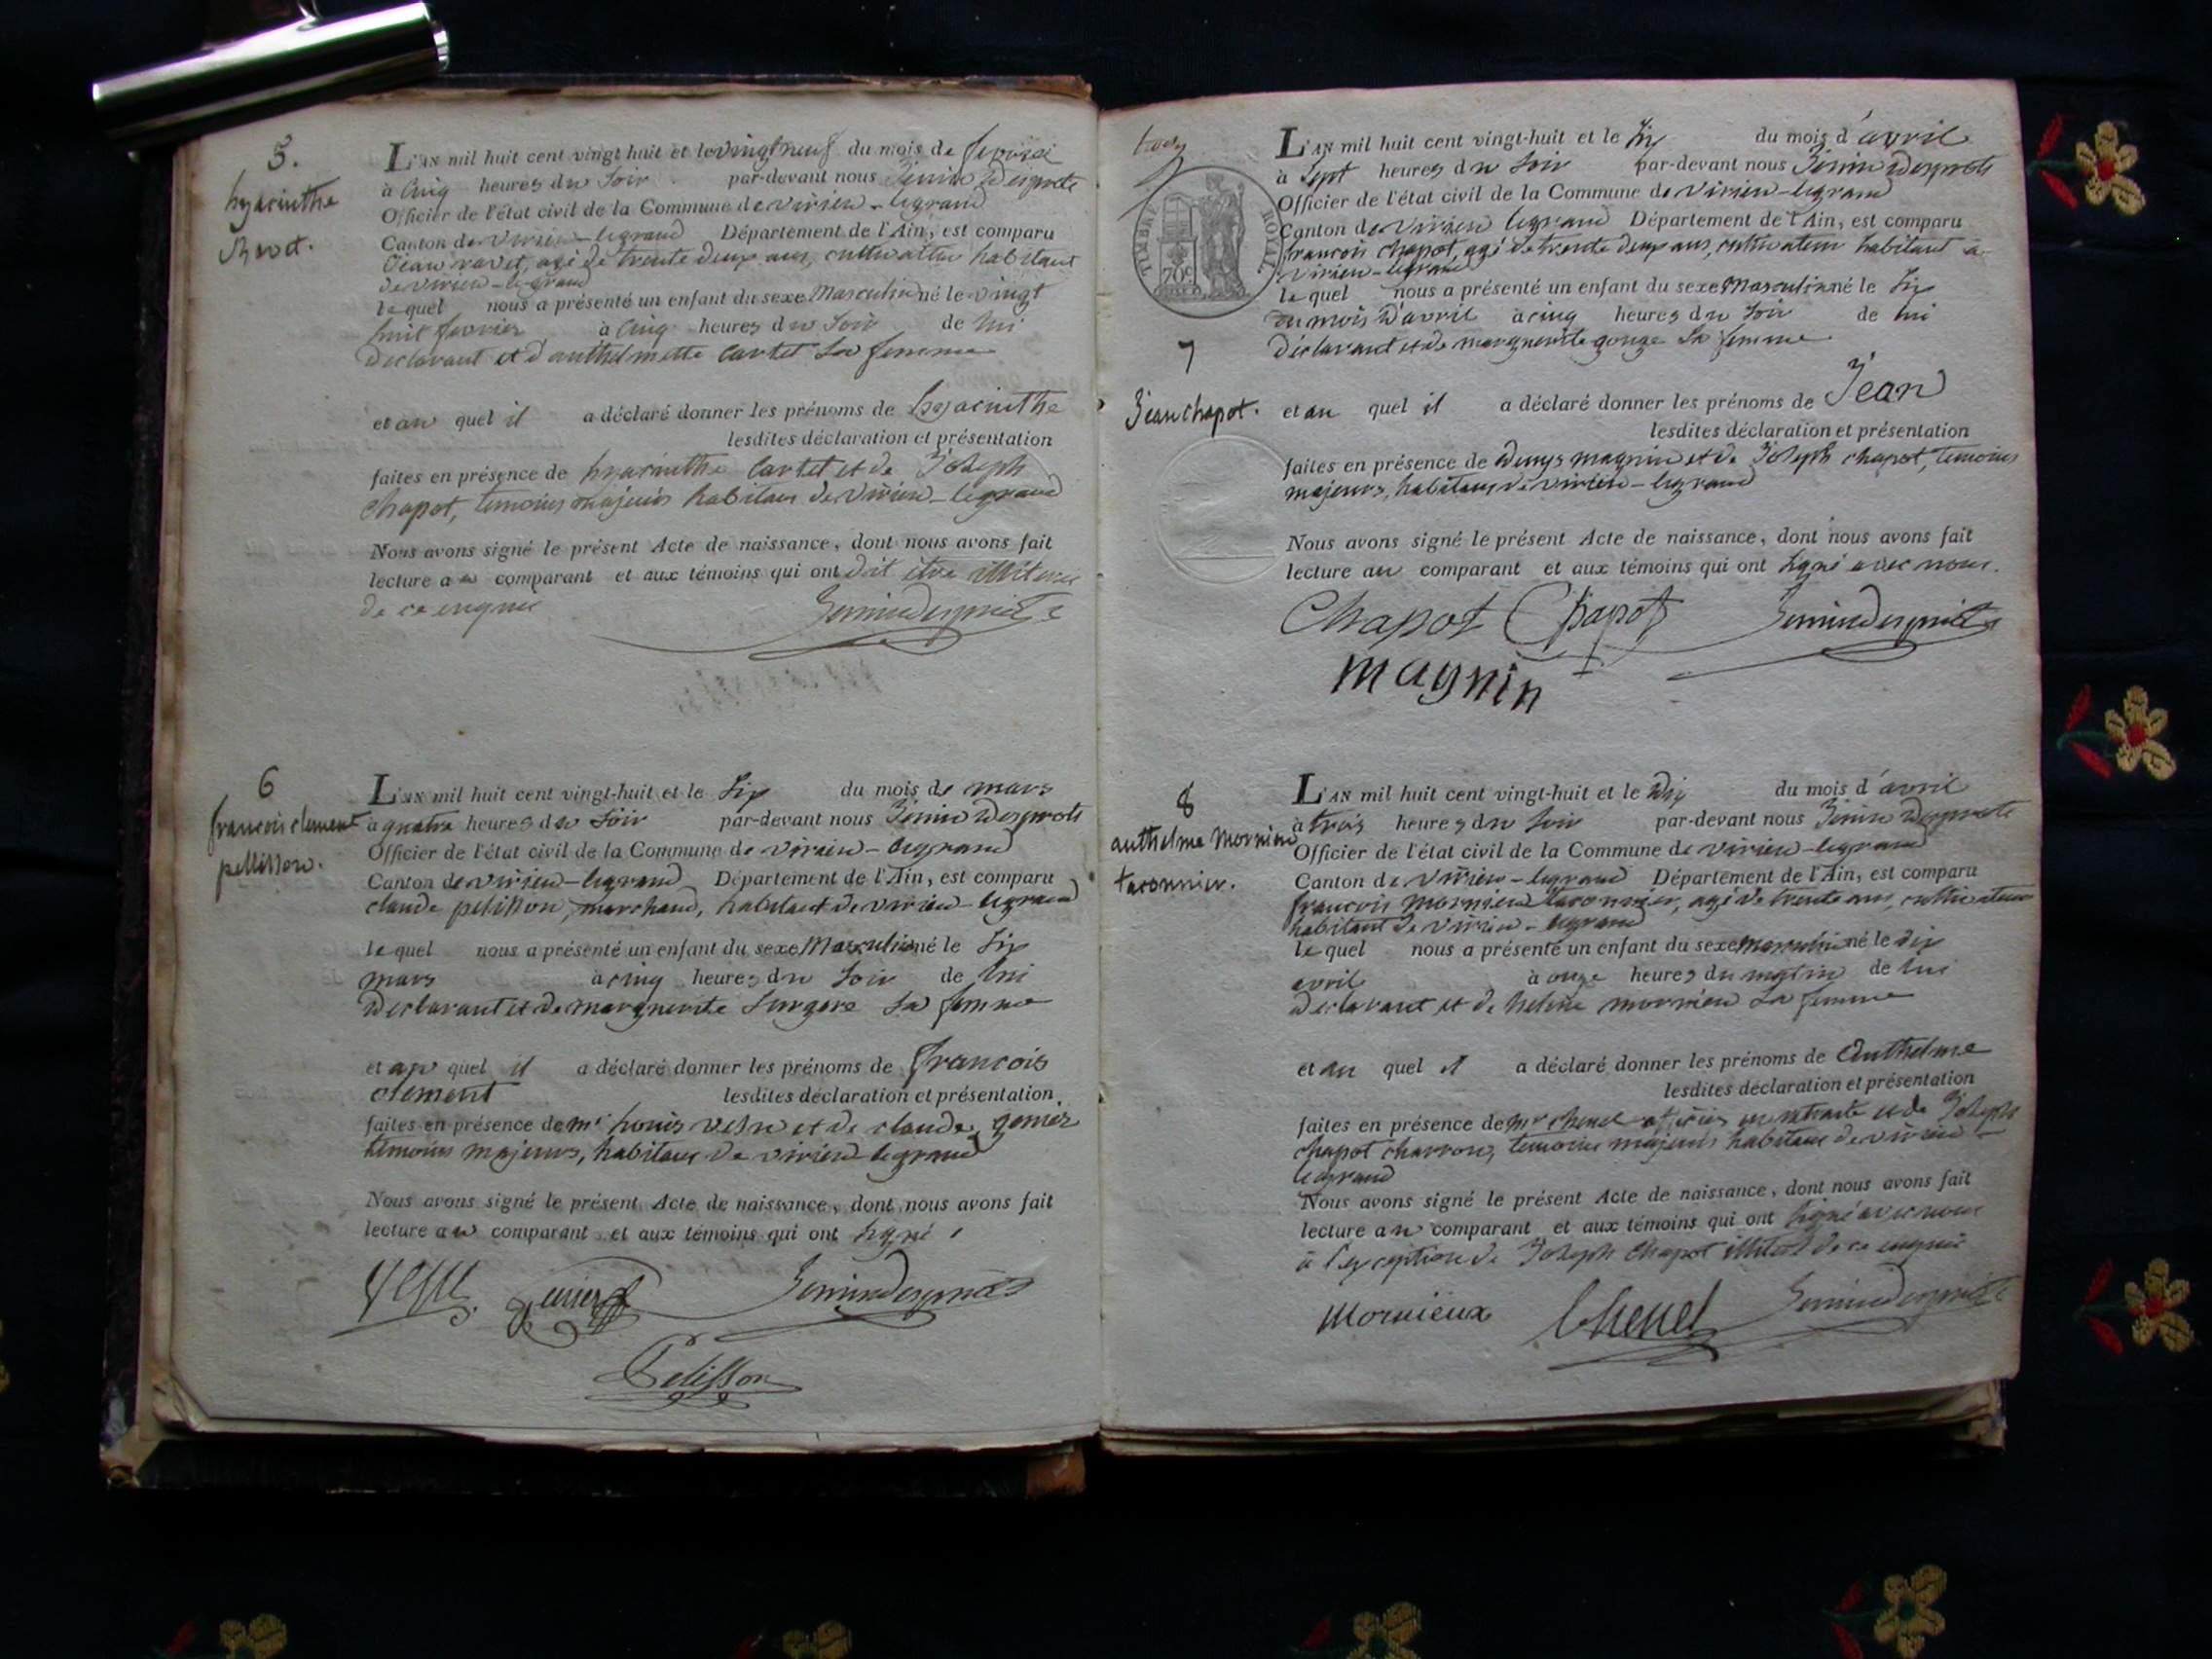 5.
hyacinthe
Ravet.
L'AN mil huit cent vingt-huit et le vingt neuf du mois de fevrier
à cinq heures du soir par-devant nous
Officier de l'état civil de la Commune de virieu-legrand
Canton de virieu-legrand Département de l'Ain, est comparu
Jean ravet, agé de trente deux ans, cultivateur habitant
de virieu-legrand
lequel nous a présenté un enfant du sexe Masculin né le vingt
huit fevrier à cinq heures du soir de lui
declarant et d'anthelmette cartet sa femme
et au quel il a déclaré donner les prénoms de hyacinthe
lesdites déclaration et présentation
faites en présence de hyacinthe Cartet et de Joseph
Chapot, temoins majeurs habitans de virieu-legrand
Nous avons signé le présent Acte de naissance, dont nous avons fait
lecture au comparant et aux témoins qui ont dit être
de ce enquis
6
francois clement
pellisson.
L'AN mil huit cent vingt-huit et le six du mois de mars
à quatre heures du soir par-devant nous
Officier de l'état civil de la Commune de virieu-legrand
Canton de virieu-legrand Département de l'Ain, est comparu
claude pelisson, marchand, habitant de virieu-legrand
lequel nous a présenté un enfant du sexe Masculin né le six
mars à cinq heures du soir de lui
declarant et de marguerite sa femme
et au quel il a déclaré donner les prénoms de francois
clement lesdites déclaration et présentation
faites en présence de mr et de claude
temoins majeurs, habitans de virieu legrand
Nous avons signé le présent Acte de naissance, dont nous avons fait
lecture au comparant et aux témoins qui ont signé
Pelisson
TIMBRE ROYAL
70c
L'AN mil huit cent vingt-huit et le six du mois d'avril
à sept heures du soir par-devant nous
Officier de l'état civil de la Commune de virieu-legrand
Canton de virieu legrand Département de l'Ain, est comparu
francois chapot, agé de trente deux ans, cultivateur habitant a
virieu-legrand
lequel nous a présenté un enfant du sexe masculin né le six
du mois d'avril à cinq heures du soir de lui
déclarant et de marguerite gouge sa femme
7
Jean chapot.
et au quel il a déclaré donner les prénoms de Jean
lesdites déclaration et présentation
faites en présence de denys magnin et de Joseph chapot, temoins
majeurs, habitans de virieu-legrand
Nous avons signé le présent Acte de naissance, dont nous avons fait
lecture au comparant et aux témoins qui ont signé avec nous.
Chapot Chapot
magnin
8
anthelme Mornieu
taconnier.
L'AN mil huit cent vingt-huit et le dix du mois d'avril
à trois heures du soir par-devant nous
Officier de l'état civil de la Commune de virieu-legrand
Canton de virieu-legrand Département de l'Ain, est comparu
francois mornieu taconnier, agé de trente ans, cultivateur
habitant de virieu-legrand
lequel nous a présenté un enfant du sexe masculin né le dix
avril à onze heures du matin de lui
declarant et de helene mornieu sa femme
et au quel il a déclaré donner les prénoms de Anthelme
lesdites déclaration et présentation
faites en présence de mr chenel officier en retraite et de Joseph
chapot charron, temoins majeurs habitans de virieu-
legrand
Nous avons signé le présent Acte de naissance, dont nous avons fait
lecture au comparant et aux témoins qui ont signé avec nous
à l'exception de Joseph Chapot de ce enquis
Mornieux Chenel